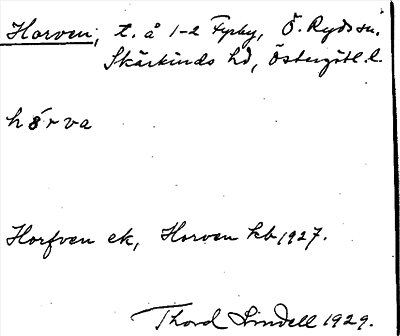 Horven, t. å 1-2 Fyrby, Ö. Ryds sn.
Skärkinds hd, Östergötl. l.
hórva
Horfven ek, Horven kb 1927.
Thord Lindell 1929.